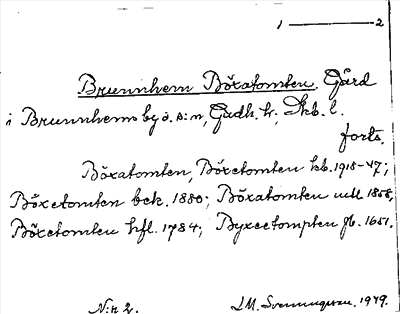 1 ——— 2
Brunnhem Böxatomten. Gård
i Brunnhems by o. s:n, Gudh. h; Skb. l.
forts.
Böxatomten, Böxetomten kb. 1918-47;
Böxetomten bek. 1880; Böxatomten utll 1858,
Böxetomten hfl. 1784; Byxeetompten jb. 1651.
N:r 2. I.M. Svenungsson. 1949.